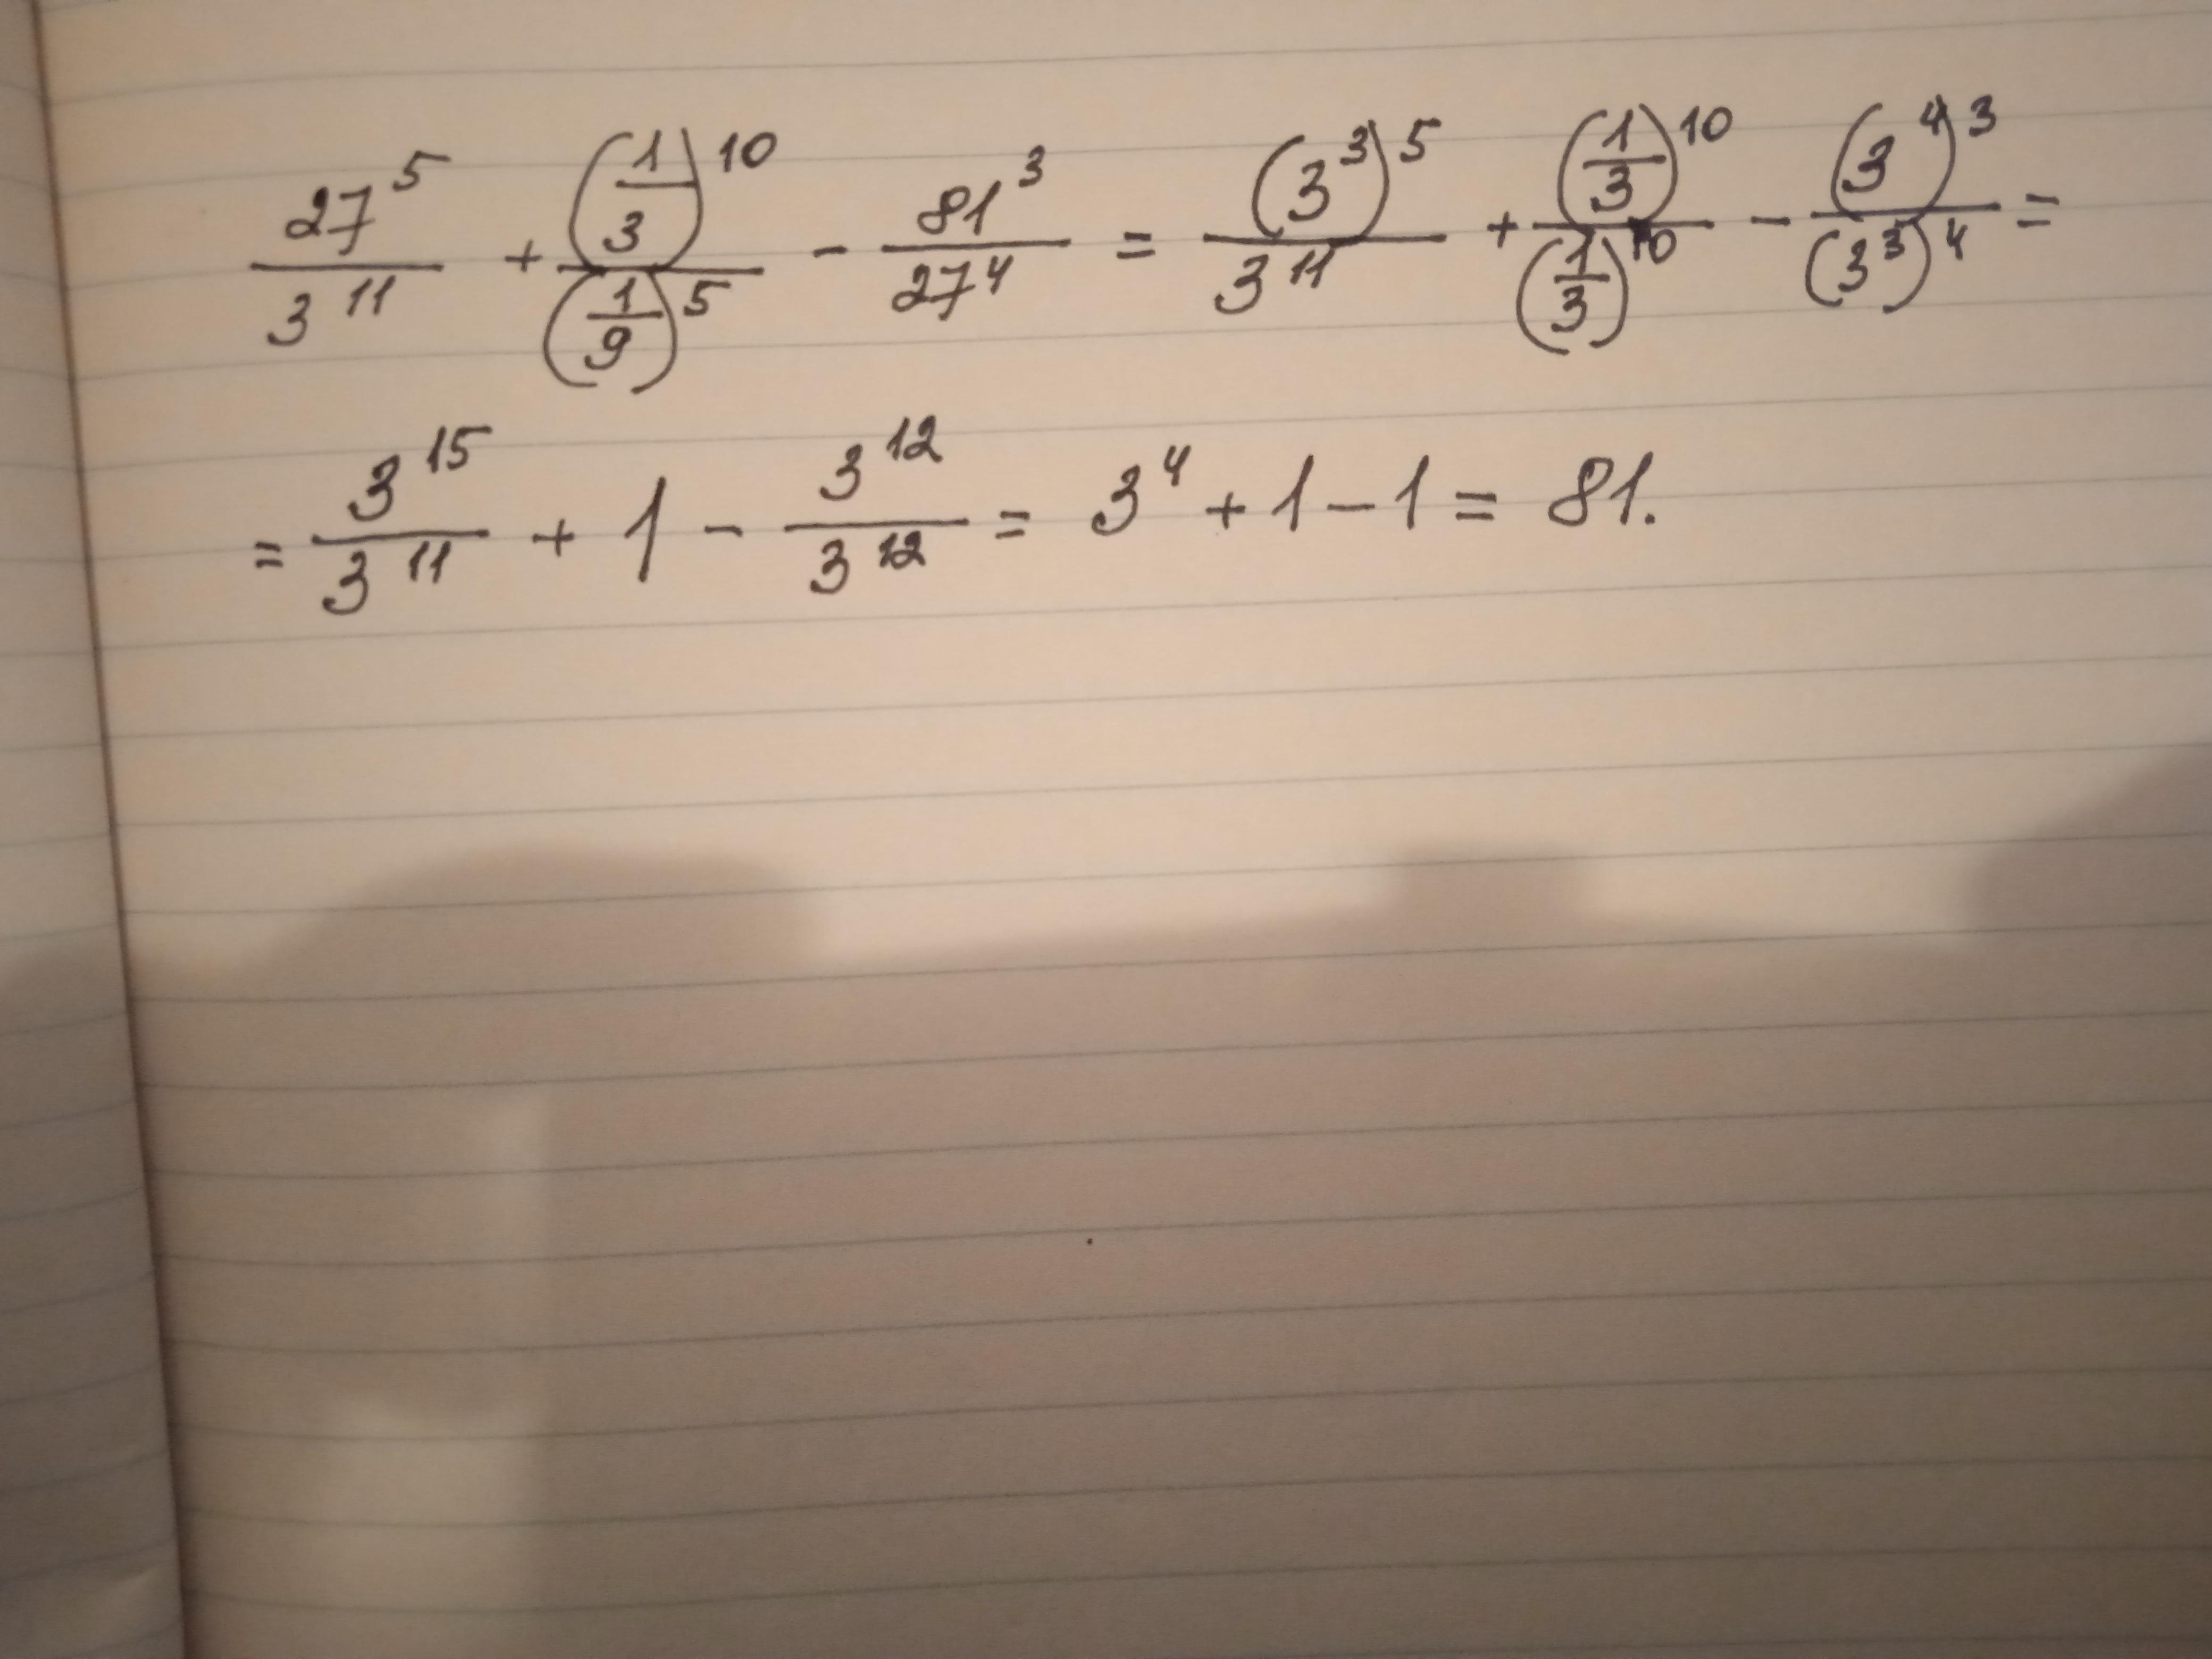 27^5/3^11 + (1/3)^10/(1/9)^5 - 81^3/27^4 = (3^3)^5/3^11 + (1/3)^10/(1/3)^10 - (3^4)^3/(3^3)^4 =
= 3^15/3^11 + 1 - 3^12/3^12 = 3^4 + 1 - 1 = 81.